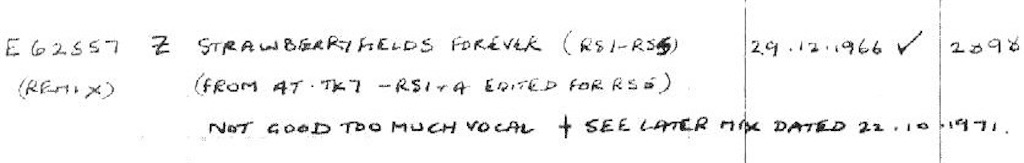 E62557 Z STRAWBERRY FIELDS FOREVER (RS1-RS5) 29.12.1966 ✓
(REMIX) (FROM 4T. TK7 -RS1+4 EDITED FOR RS5)
NOT GOOD TOO MUCH VOCAL + SEE LATER MIX DATED 22.10.1971.